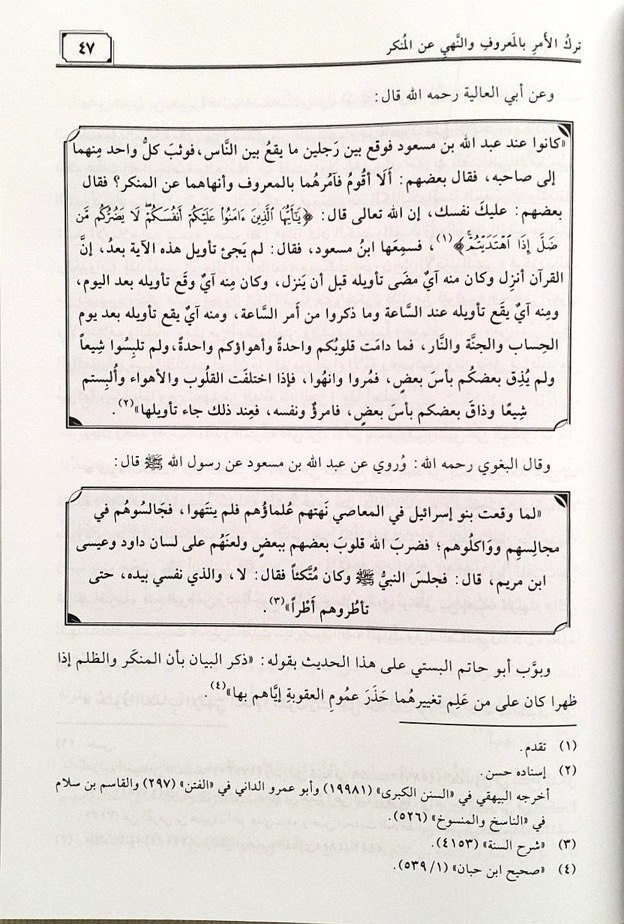 تركُ الأمرِ بالمَعروفِ والنَّهي عن المُنكر
٤٧
وعن أبي العالية رحمه الله قال:
«كانوا عند عبد الله بن مسعود فوقع بين رَجلين ما يقعُ بين النَّاس، فوثبَ كلُّ واحد مِنهما
إلى صاحبه، فقال بعضهم: أَلَا أقُومُ فآمرُهُما بالمعروف وأنهاهما عن المنكر؟ فقال
بعضهم: عليكَ نفسك، إن الله تعالى قال: ﴿يَـٰٓأَيُّهَا ٱلَّذِينَ ءَامَنُوا۟ عَلَيْكُمْ أَنفُسَكُمْ ۖ لَا يَضُرُّكُم مَّن
ضَلَّ إِذَا ٱهْتَدَيْتُمْ ۚ﴾(١)، فسمِعَها ابنُ مسعود، فقال: لم يَجئ تأويل هذه الآية بعدُ، إنَّ
القرآن أنزِل وكان منه آيٌ مضَى تأويله قبل أن يَنزل، وكان مِنه آيٌ وقَع تأويله بعد اليوم،
ومِنه آيٌ يقَع تأويله عند السَّاعة وما ذكروا من أَمر السَّاعة، ومنه آيٌ يقع تأويله بعد يوم
الحِساب والجنَّة والنَّار، فما دامَت قلوبُكم واحدةً وأهواؤكم واحدةً، ولم تلبِسُوا شِيعاً
ولم يُذِق بعضكُم بأسَ بعضٍ، فمُروا وانهُوا، فإذا اختلفَت القلُوب والأهواء وأُلبِستم
شِيعًا وذاقَ بعضكم بأسَ بعضٍ، فامرؤٌ ونفسه، فعِند ذلك جاء تأويلها»(٢).
وقال البغوي رحمه الله: وُروي عن عبد الله بن مسعود عن رسول الله ﷺ قال:
«لما وقعت بنو إسرائيل في المعاصي نَهتهم عُلماؤُهم فلم ينتَهوا، فجَالسُوهُم في
مجالسِهم ووَاكلُوهم؛ فضربَ الله قلوبَ بعضهم ببعضٍ ولعنَهُم على لسان داود وعيسى
ابن مريم، قال: فجلسَ النبيُّ ﷺ وكان مُتَّكئاً فقال: لا، والذي نفسي بيده، حتى
تأطُروهم أَطْراً»(٣).
وبوَّب أبو حاتم البستي على هذا الحديث بقوله: «ذكر البيان بأن المنكَر والظلم إذا
ظهرا كان على من عَلِم تغييرهُما حَذَرَ عمُومِ العقوبةِ إيَّاهم بها»(٤).
(١) تقدم.
(٢) إسناده حسن.
أخرجه البيهقي في «السنن الكبرى» (١٩٩٨١) وأبو عمرو الداني في «الفتن» (٢٩٧) والقاسم بن سلام
في «الناسخ والمنسوخ» (٥٢٦).
(٣) «شرح السنة» (٤١٥٣).
(٤) «صحيح ابن حبان» (١/ ٥٣٩).